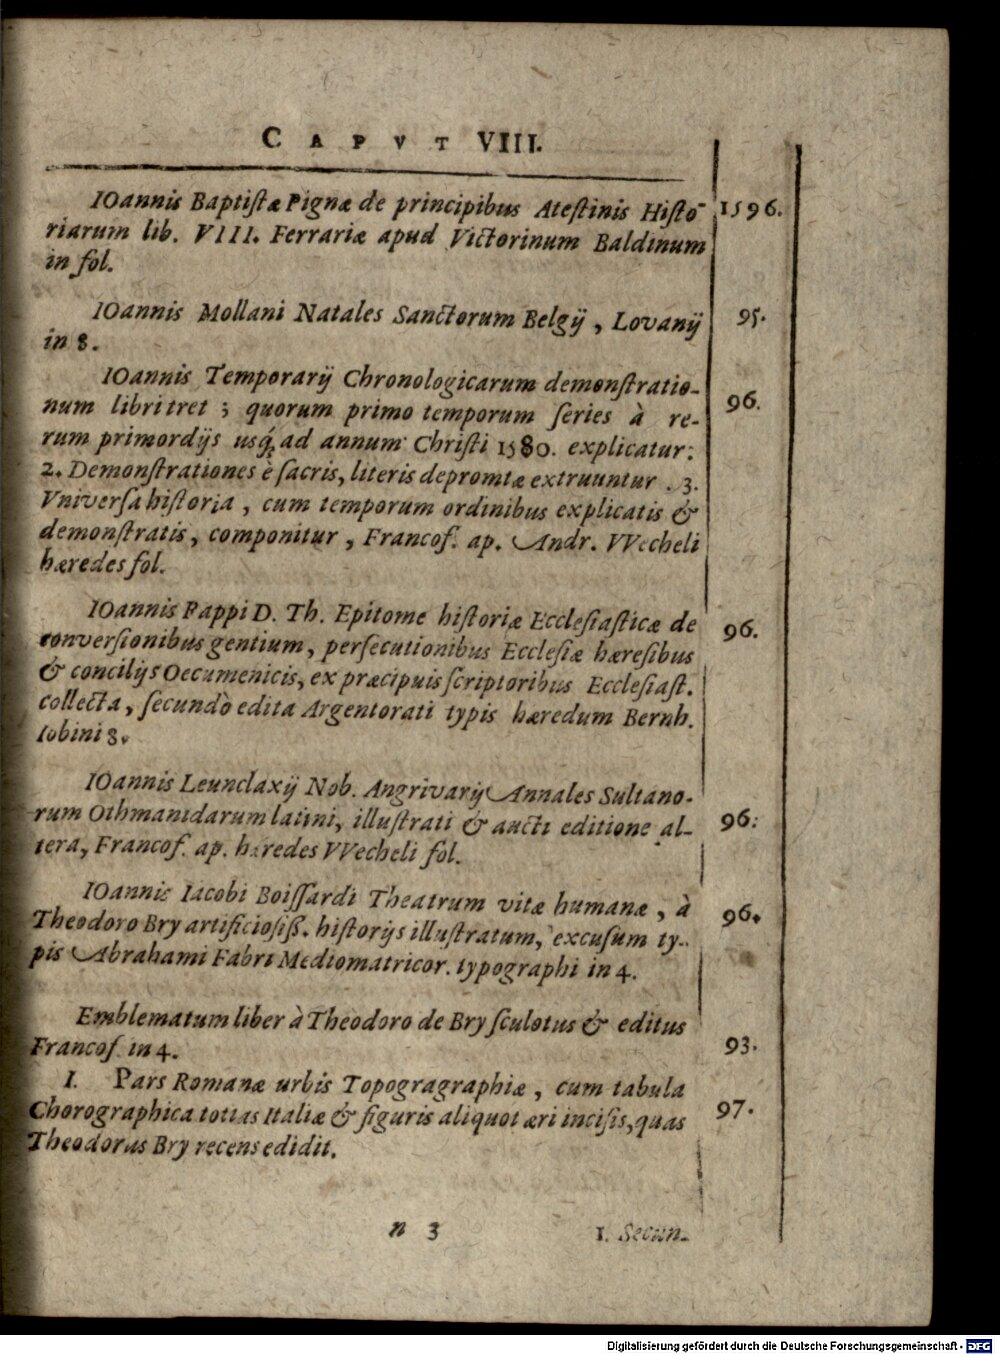 CAPVT VIII.
IOannis Baptistæ Pignæ de principibus Atestinis Histo- 1596.
riarum lib. VIII. Ferrariæ apud Victorinum Baldinum
in fol.
IOannis Mollani Natales Sanctorum Belgij, Lovanij 95.
in 8.
IOannis Temporarij Chronologicarum demonstratio- 96.
num libri tret ; quorum primo temporum series à re-
rum primordijs usq́; ad annum Christi 1580. explicatur:
2. Demonstrationes è sacris, literis depromtæ extruuntur . 3.
Vniversa historia , cum temporum ordinibus explicatis &
demonstratis, componitur , Francof. ap. Andr. VVecheli
hæredes fol.
IOannis Pappi D. Th. Epitome historiæ Ecclesiasticæ de 96.
conversionibus gentium, persecutionibus Ecclesiæ hæresibus
& concilijs Oecumenicis, ex præcipuis scriptoribus Ecclesiast.
collecta, secundò edita Argentorati typis hæredum Bernh.
Iobini 8.
IOannis Leunclaxij Nob. Angrivarij Annales Sultano-
rum Othmanidarum latini, illustrati & aucti editione al- 96.
tera, Francof. ap. hæredes VVecheli fol.
IOannis Iacobi Boissardi Theatrum vitæ humanæ , à 96.
Theodoro Bry artificiosiss. historijs illustratum, excusum ty-
pis Abrahami Fabri Mediomatricor. typographi in 4.
Emblematum liber à Theodoro de Bry sculotus & editus
Francof. in 4. 93.
I. Pars Romanæ urbis Topogragraphiæ , cum tabula
Chorographica totias Italiæ & figuris aliquot æri incisis, quas 97.
Theodorus Bry recens edidit.
n 3 1. Secun-
Digitalisierung gefördert durch die Deutsche Forschungsgemeinschaft - DFG